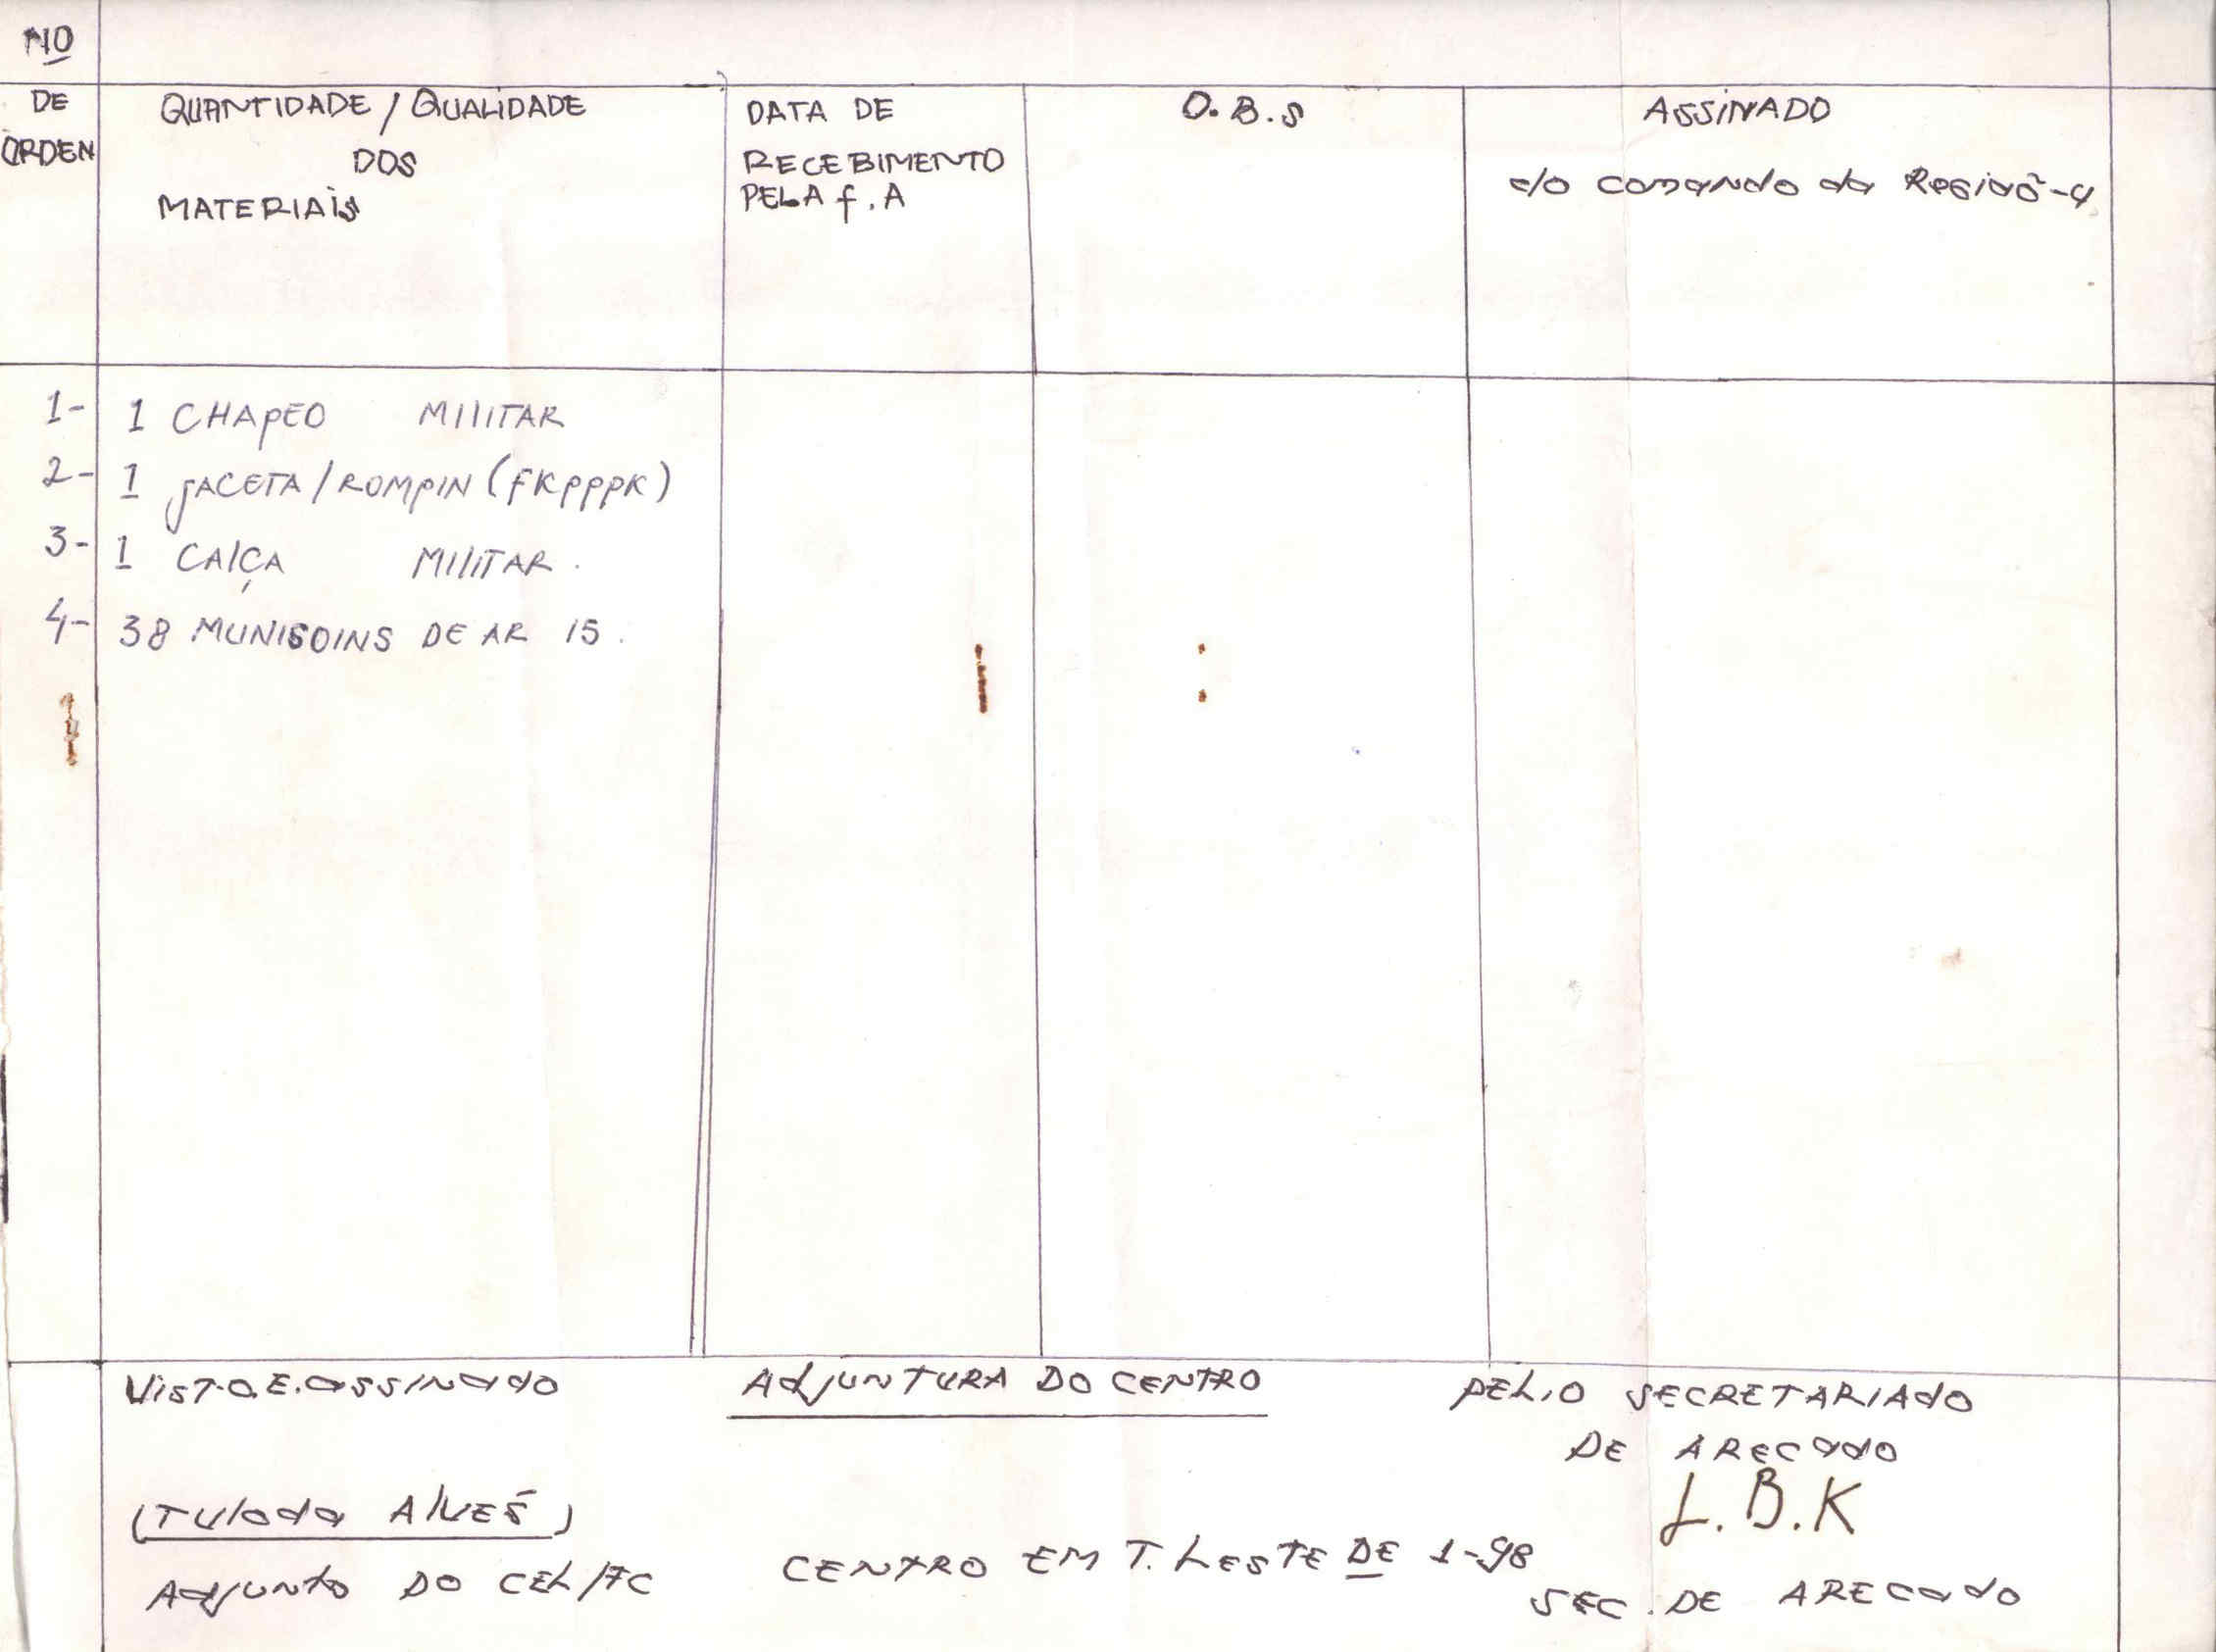 Nº
DE
ORDEN
QUANTIDADE / QUALIDADE
DOS
MATERIAIS
DATA DE
RECEBIMENTO
PELA F.A
O.B.S
ASSINADO
do comando da Regiaõ-4
1- 1 CHAPEO MILITAR
2- 1 JACETA/ROMPIN (FKPPPK)
3- 1 CALÇA MILITAR.
4- 38 MUNISOINS DE AR 15.
VIST.O.E.assinado
AdJUNTURA DO CENTRO
PEL,O SECRETARIAdO
DE ARECado
L.B.K
(Tulada Alves)
CENTRO EM T. LESTE DE 1-98
AdJunto DO CEL/FC
SEC. DE ARECado